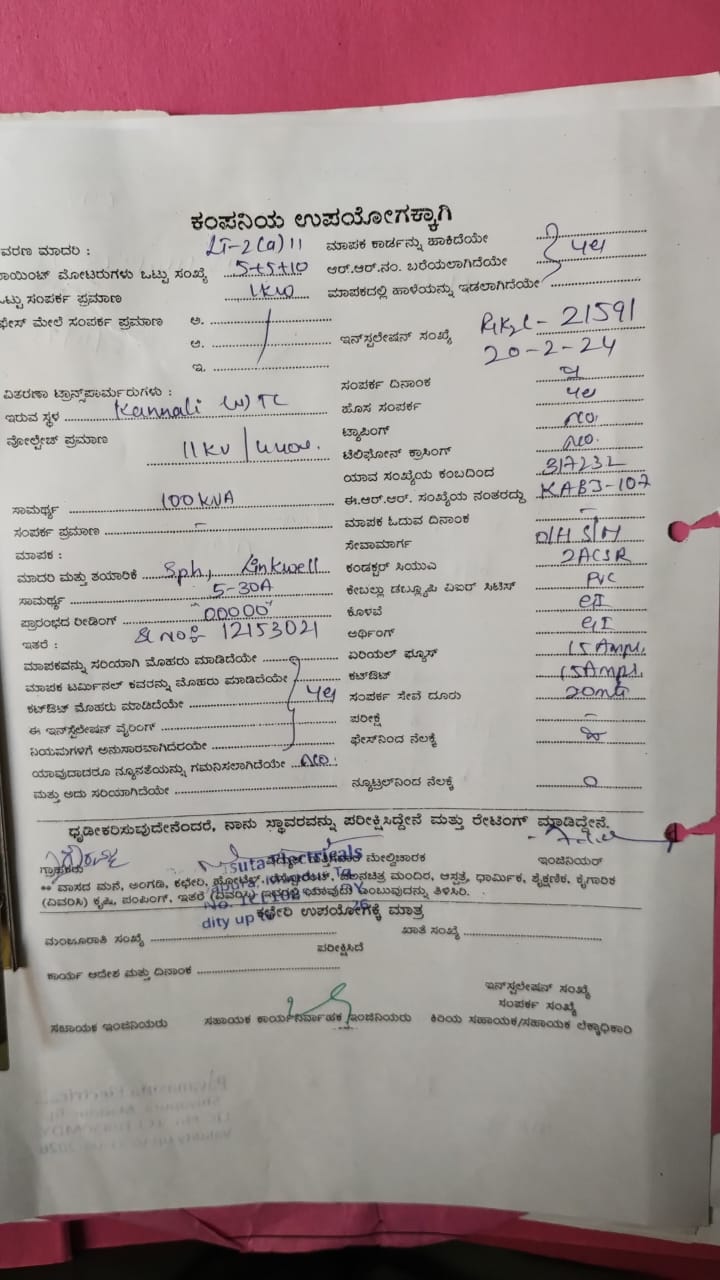 ಕಂಪನಿಯ ಉಪಯೋಗಕ್ಕಾಗಿ
ವರಣ ಮಾದರಿ : LT-2(a)11 ಮಾಪಕ ಕಾರ್ಡನ್ನು ಹಾಕಿದೆಯೇ
ಾಯಿಂಟ್ ಮೋಟರುಗಳು ಒಟ್ಟು ಸಂಖ್ಯೆ 5+5+10 ಆರ್.ಆರ್.ನಂ. ಬರೆಯಲಾಗಿದೆಯೇ yes
ಒಟ್ಟು ಸಂಪರ್ಕ ಪ್ರಮಾಣ 1KW ಮಾಪಕದಲ್ಲಿ ಹಾಳೆಯನ್ನು ಇಡಲಾಗಿದೆಯೇ
ಫೇಸ್ ಮೇಲೆ ಸಂಪರ್ಕ ಪ್ರಮಾಣ ಅ.
ಆ. ಇನ್‌ಸ್ಟಲೇಷನ್ ಸಂಖ್ಯೆ 21591
ಇ. 20-2-24
ವಿತರಣಾ ಟ್ರಾನ್ಸ್‌ಫಾರ್ಮರುಗಳು : ಸಂಪರ್ಕ ದಿನಾಂಕ
ಇರುವ ಸ್ಥಳ Kannali (N) TC ಹೊಸ ಸಂಪರ್ಕ yes
ವೋಲ್ಟೇಜ್ ಪ್ರಮಾಣ 11KV ಟ್ಯಾಪಿಂಗ್ No.
ಟೆಲಿಫೋನ್ ಕ್ರಾಸಿಂಗ್ No.
ಯಾವ ಸಂಖ್ಯೆಯ ಕಂಬದಿಂದ 317232
ಸಾಮರ್ಥ್ಯ 100KVA ಈ.ಆರ್.ಆರ್. ಸಂಖ್ಯೆಯ ನಂತರದ್ದು KABJ-107
ಸಂಪರ್ಕ ಪ್ರಮಾಣ - ಮಾಪಕ ಓದುವ ದಿನಾಂಕ -
ಮಾಪಕ : ಸೇವಾಮಾರ್ಗ O/H S/H
ಮಾದರಿ ಮತ್ತು ತಯಾರಿಕೆ Sph, Linkwell ಕಂಡಕ್ಟರ್ ಸಿಯುಎ 2ACSR
ಸಾಮರ್ಥ್ಯ 5-30A ಕೇಬಲ್ಲು ಡಬ್ಲ್ಯೂಪಿ ವಿಐರ್ ಸಿಟಿಸ್ PVC
ಪ್ರಾರಂಭದ ರೀಡಿಂಗ್ 00000 ಕೊಳವೆ GI
ಇತರೆ : Sl No: 12153021 ಅರ್ಥಿಂಗ್ GI
ಮಾಪಕವನ್ನು ಸರಿಯಾಗಿ ಮೊಹರು ಮಾಡಿದೆಯೇ ಏರಿಯಲ್ ಫ್ಯೂಸ್ 15Amps.
ಮಾಪಕ ಟರ್ಮಿನಲ್ ಕವರನ್ನು ಮೊಹರು ಮಾಡಿದೆಯೇ ಕಟ್‌ಔಟ್ 15Amps.
ಕಟ್‌ಔಟ್ ಮೊಹರು ಮಾಡಿದೆಯೇ yes ಸಂಪರ್ಕ ಸೇವೆ ದೂರು
ಈ ಇನ್‌ಸ್ಟಲೇಷನ್ ವೈರಿಂಗ್ ಪರೀಕ್ಷೆ -
ನಿಯಮಗಳಿಗೆ ಅನುಸಾರವಾಗಿದರಯೇ ಫೇಸ್‌ನಿಂದ ನೆಲಕ್ಕೆ
ಯಾವುದಾದರೂ ನ್ಯೂನತೆಯನ್ನು ಗಮನಿಸಲಾಗಿದೆಯೇ No.
ಮತ್ತು ಅದು ಸರಿಯಾಗಿದೆಯೇ ನ್ಯೂಟ್ರಲ್‌ನಿಂದ ನೆಲಕ್ಕೆ 0
ಧೃಡೀಕರಿಸುವುದೇನೆಂದರೆ, ನಾನು ಸ್ಥಾವರವನ್ನು ಪರೀಕ್ಷಿಸಿದ್ದೇನೆ ಮತ್ತು ರೇಟಿಂಗ್ ಮಾಡಿದ್ದೇನೆ.
ಗ್ರಾಹಕರು ಮೇಲ್ವಿಚಾರಕ ಇಂಜಿನಿಯರ್
suta Electricals
** ವಾಸದ ಮನೆ, ಅಂಗಡಿ, ಕಛೇರಿ, ಹೋಟೆಲ್, ಚಲನಚಿತ್ರ ಮಂದಿರ, ಆಸ್ಪತ್ರೆ, ಧಾರ್ಮಿಕ, ಶೈಕ್ಷಣಿಕ, ಕೈಗಾರಿಕ
(ವಿವರಿಸಿ) ಕೃಷಿ, ಪಂಪಿಂಗ್, ಇತರೆ (ವಿವರಿಸಿ) ಇವುಗಳಲ್ಲಿ ಯಾವುದು ಎಂಬುವುದನ್ನು ತಿಳಿಸಿರಿ.
dity up to
ಕಛೇರಿ ಉಪಯೋಗಕ್ಕೆ ಮಾತ್ರ
ಮಂಜೂರಾತಿ ಸಂಖ್ಯೆ ಖಾತೆ ಸಂಖ್ಯೆ
ಪರೀಕ್ಷಿಸಿದೆ
ಕಾರ್ಯ ಆದೇಶ ಮತ್ತು ದಿನಾಂಕ
ಇನ್‌ಸ್ಟಲೇಷನ್ ಸಂಖ್ಯೆ
ಸಂಪರ್ಕ ಸಂಖ್ಯೆ
ಸಹಾಯಕ ಇಂಜಿನಿಯರು ಸಹಾಯಕ ಕಾರ್ಯನಿರ್ವಾಹಕ ಇಂಜಿನಿಯರು ಕಿರಿಯ ಸಹಾಯಕ/ಸಹಾಯಕ ಲೆಕ್ಕಾಧಿಕಾರಿ